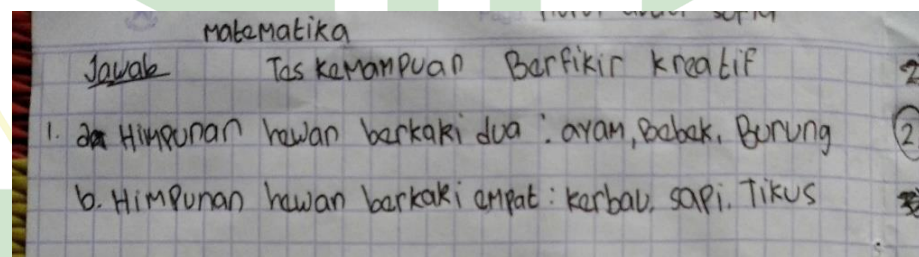 Matematika
Jawab Tes Kemampuan Berfikir kreatif
2
1. a Himpunan hewan berkaki dua : ayam, Bebek, Burung 2
b. Himpunan hewan berkaki empat : kerbau, sapi. Tikus